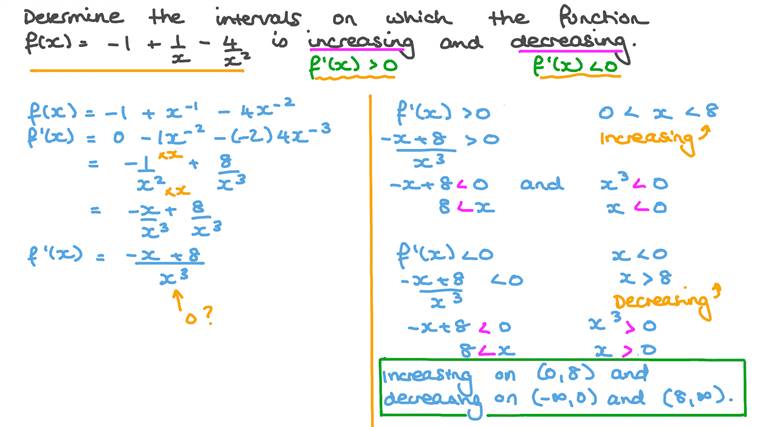 Determine the intervals on which the function
f(x) = -1 + 1/x - 4/x² is increasing and decreasing.
f'(x) > 0
f'(x) < 0
f(x) = -1 + x⁻¹ - 4x⁻²
f'(x) = 0 - 1x⁻² - (-2)4x⁻³
= -1/x² + 8/x³
×x
×x
= -x/x³ + 8/x³
f'(x) = (-x + 8)/x³
0?
f'(x) > 0
0 < x < 8
(-x + 8)/x³ > 0
Increasing
-x + 8 < 0 and x³ < 0
8 < x
x < 0
f'(x) < 0
x < 0
(-x + 8)/x³ < 0
x > 8
Decreasing
-x + 8 < 0
x³ > 0
8 < x
x > 0
Increasing on (0, 8) and
decreasing on (-∞, 0) and (8, ∞).